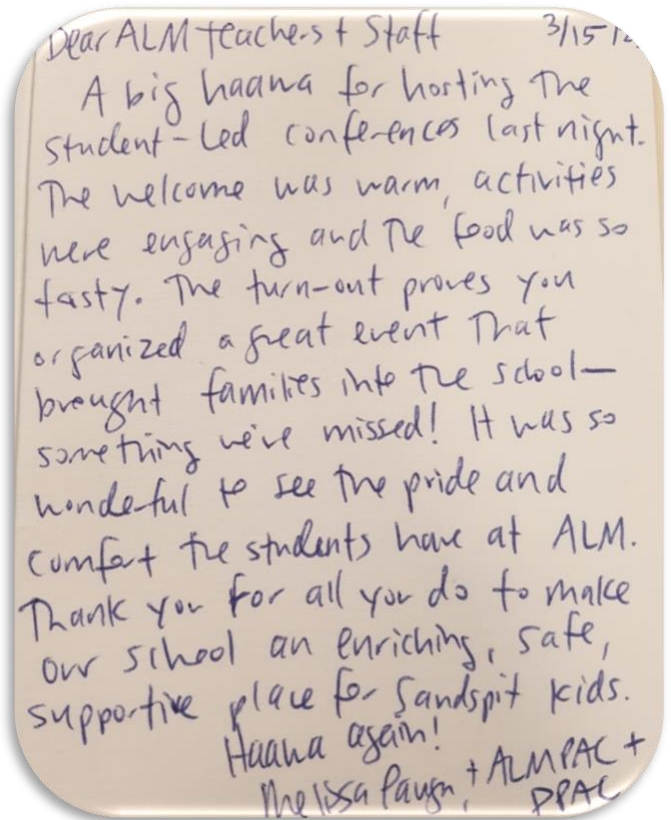 Dear ALM teachers + Staff 3/15
A big haawa for hosting the
student-led conferences last night.
The welcome was warm, activities
were engaging and the food was so
tasty. The turn-out proves you
organized a great event that
brought families into the school—
something we've missed! It was so
wonderful to see the pride and
comfort the students have at ALM.
Thank you for all you do to make
our school an enriching, safe,
supportive place for Sandspit kids.
Haawa again!
Melissa + ALMPAC +
DPAC